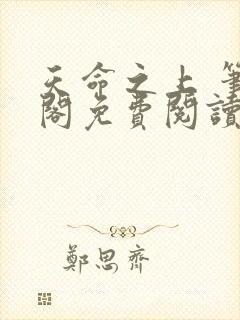 天命之上 筆
閣免費閱讀
鄭思齊